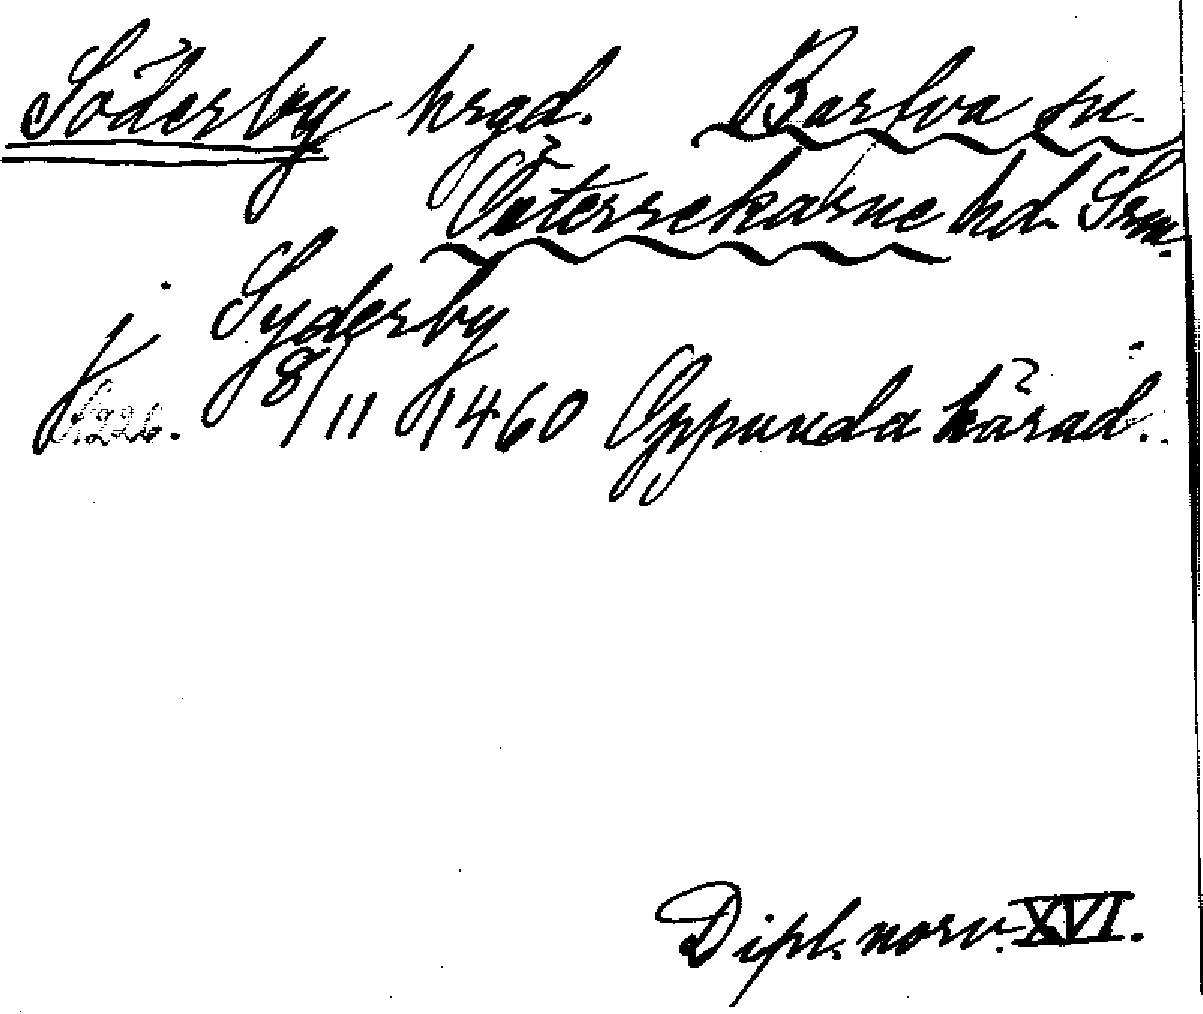 Söderby hrgd. Barfva sn.
Österrekarne hd. Srm.
j Syderby
s. 226. 8/11 1460 Oppunda härad.
Dipl. norv. XVI.